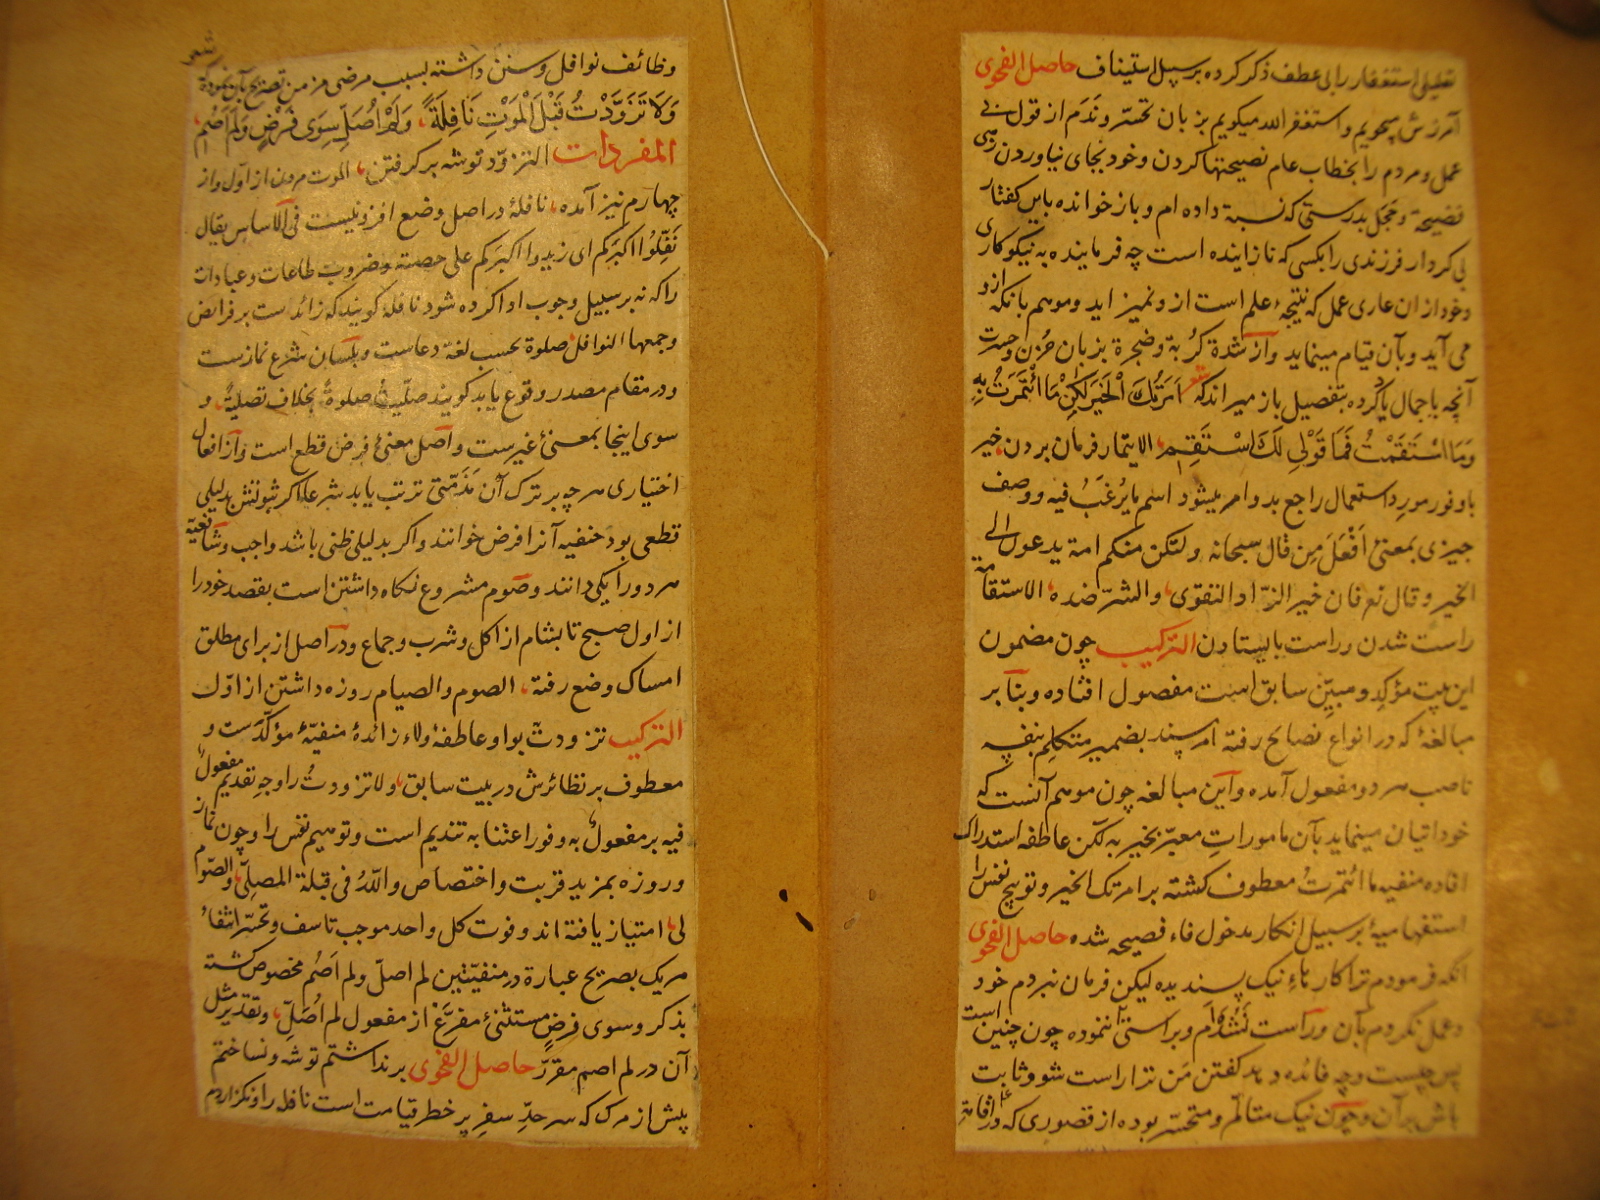 تعلیلی استغفار را بی عطف ذکر کرده بر سبیل استیناف حاصل الفحوی
آمرزش میجویم و استغفر الله میکویم بزبان تحسّر و ندم از قول بی
عمل و مردم را بخطاب عام نصیحتها کردن و خود بجای نیاوردن
فضیحة و خجل بدرستی که نسبة داده ام و باز خوانده باین کفتار
بی کردار فرزندی را بکسی که نازاینده است چه فرماینده به نیکوکاری
و خود از ان عاری عمل که نتیجهٔ علم است ازو نمیزاید و موهم بانکه ازو
می آید و بآن قیام مینماید و از شدة کُربة و ضجرة بزبان حزن و حسرت
آنچه باجمال یاد کرده بتفصیل باز میراند که شعر اَمَرتُكَ الْخَیرَ لکِنْ مَا ائْتَمَرتُ بِهِ
وَمَا اسْتَقَمْتُ فَمَا قَوْلِی لَكَ اسْتَقِمِ الایتمار فرمان بردن خیر
با وفور مورد استعمال راجع بدو امر میشود اسم ما یُرغَبُ فیه و وصف
چیزی بمعنی اَفْعَلَ مِن قال سبحانه ولتکن منکم امة یدعون الی
الخیر و قال تع فان خیر الزّاد التقوی والشرّ ضده الاستقامة
راست شدن و راست بایستادن الترکیب چون مضمون
این بیت مؤکدِ و مبیِّن سابق است مفصول افتاده و بنا بر
مبالغهٔ که در انواع نصایح رفته امر سپند بضمیر متکلم بنفسه
ناصب هر دو مفعول آمده و این مبالغه چون موهم آنست که
خود اتیان مینماید بآن ماموراتِ معبّر بخیر به لکن عاطفه استدراک
افاده منفیه ما ائتمرتُ معطوف کشته بر امرتک الخیر و توبیخ نفس را
استفهامیهٔ بر سبیل انکار مدخول فاء فصیحه شده حاصل الفحوی
انکه فرمودم ترا کارهاء نیک پسندیده لیکن فرمان نبردم خود
و عمل نکردم بآن و راست نشده ام و براستی آن ننموده چون چنین است
پس چیست و چه فائده دهد کفتن من ترا راست شو و ثابت
باش بر آن و چون نیک متالم و متحسّر بوده از قصوری که در اقامة
وظائف نوافل و سنن داشته بسبب مرضی مزمن تصریح بآن نموده که شعر
وَلَا تَزَوَّدْتُ قَبْلَ الْمَوْتِ نَافِلَةً وَلَمْ اُصَلِّ سِوَی فَرْضٍ وَلَمْ اَصُمِ
المفردات التزوّد توشه بر کرفتن الموت مردن از اوّل و از
چهارم نیز آمده نافلهٔ در اصل وضع افزونیست فی الاساس یقال
نَفِّلُوا اکبرکم ای زیدوا اکبرکم علی حصته و ضروب طاعات و عبادات
را که نه بر سبیل وجوب ادا کرده شود نافله کویند که زائد است بر فرائض
و جمعها النوافل صلوة بحسب لغة دعاست و بلسان شرع نمازست
و در مقام مصدر وقوع یابد کویند صلّیتُ صلوةً بخلاف تصلیةً و
سوی اینجا بمعنئ غیرست و اصل معنئ فرض قطع است و از افعال
اختیاری هرچه بر ترک آن مَذمّتی ترتب یابد شرعا اکر ثبوتش بدلیلی
قطعی بود حنفیه آنرا فرض خوانند و اکر بدلیلی ظنی باشد واجب و شافعیه
هر دو را یکی دانند و صوم مشروع نکاه داشتن است بقصد خود را
از اول صبح تا بشام از اکل و شرب و جماع و در اصل از برای مطلق
امساک وضع رفته الصوم والصیام روزه داشتن از اوّل
الترکیب تزودت بواو عاطفهٔ ولاء زائدهٔ منفیّهٔ مؤکّدست و
معطوف بر نظائرش در بیت سابق ولا تزودتُ را وجهِ تقدیم مفعول
فیه بر مفعول به وفور اعتنا به تندیم است و توهیم نفس را و چون نماز
و روزه بمزید قربت و اختصاص واللهُ فی قبلة المصلّی والصّوم
لی امتیاز یافته اند و فوت کل واحد موجب تاسف و تحسّر انتفاء
هریک بصریح عبارة در منفیّتین لم اصلّ ولم اَصُم مخصوص کشته
بذکر و سوی فرضٍ مستثنئ مفرَّغ از مفعول لم اُصَلِّ و تقدیر مثل
آن در لم اصم مقرّر حاصل الفحوی برنداشتم توشه و نساختم
پیش از مرک که سر حدِّ سفر پر خطر قیامت است نافله را و نکزاردم